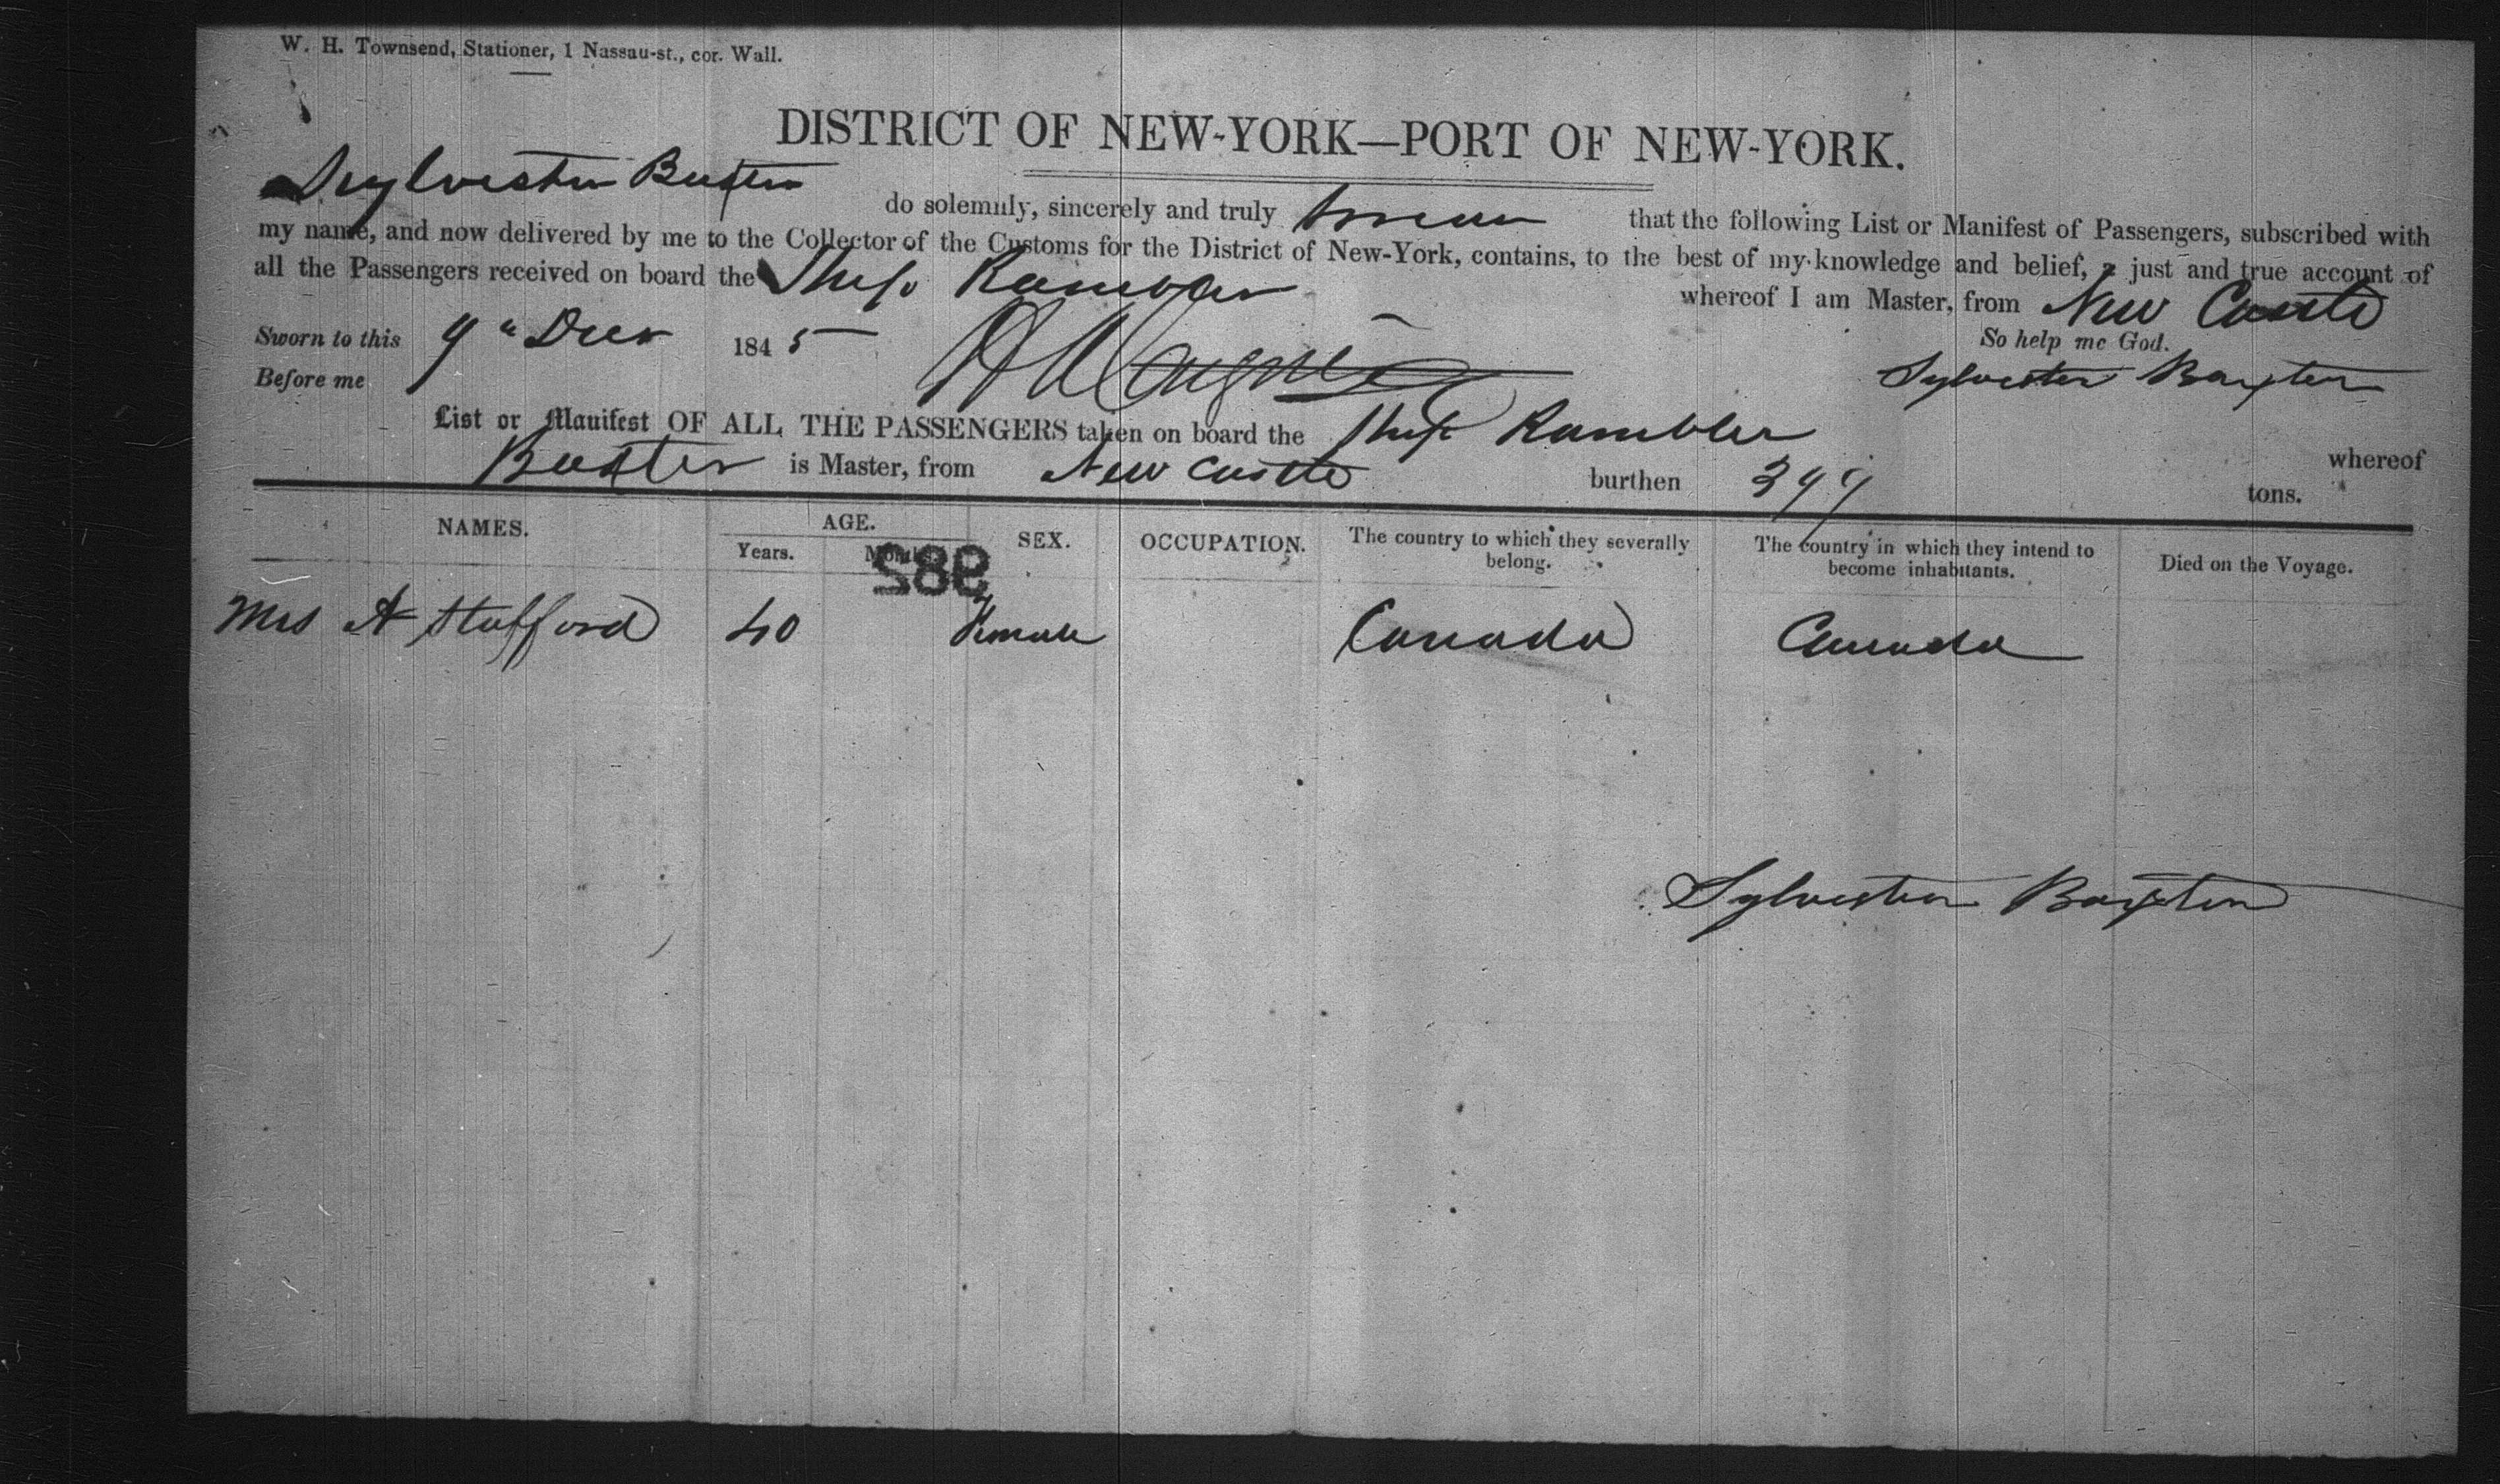 W. H. Townsend, Stationer, 1 Nassau-st., cor. Wall.
DISTRICT OF NEW-YORK—PORT OF NEW-YORK.
I Sylvester Baxter do solemnly, sincerely and truly swear that the following List or Manifest of Passengers, subscribed with
my name, and now delivered by me to the Collector of the Customs for the District of New-York, contains, to the best of my knowledge and belief, a just and true account of
all the Passengers received on board the Ship Rambler whereof I am Master, from New Castle
So help me God.
Sworn to this 9th Decr 1845
Before me
Sylvester Baxter
List or Manifest OF ALL THE PASSENGERS taken on board the Ship Rambler whereof
Baxter is Master, from New Castle burthen 399 tons.
NAMES. AGE. SEX. OCCUPATION. The country to which they severally belong. The country in which they intend to become inhabitants. Died on the Voyage.
Years. Months.
982
Mrs A Stafford 40 Female Canada Canada
Sylvester Baxter